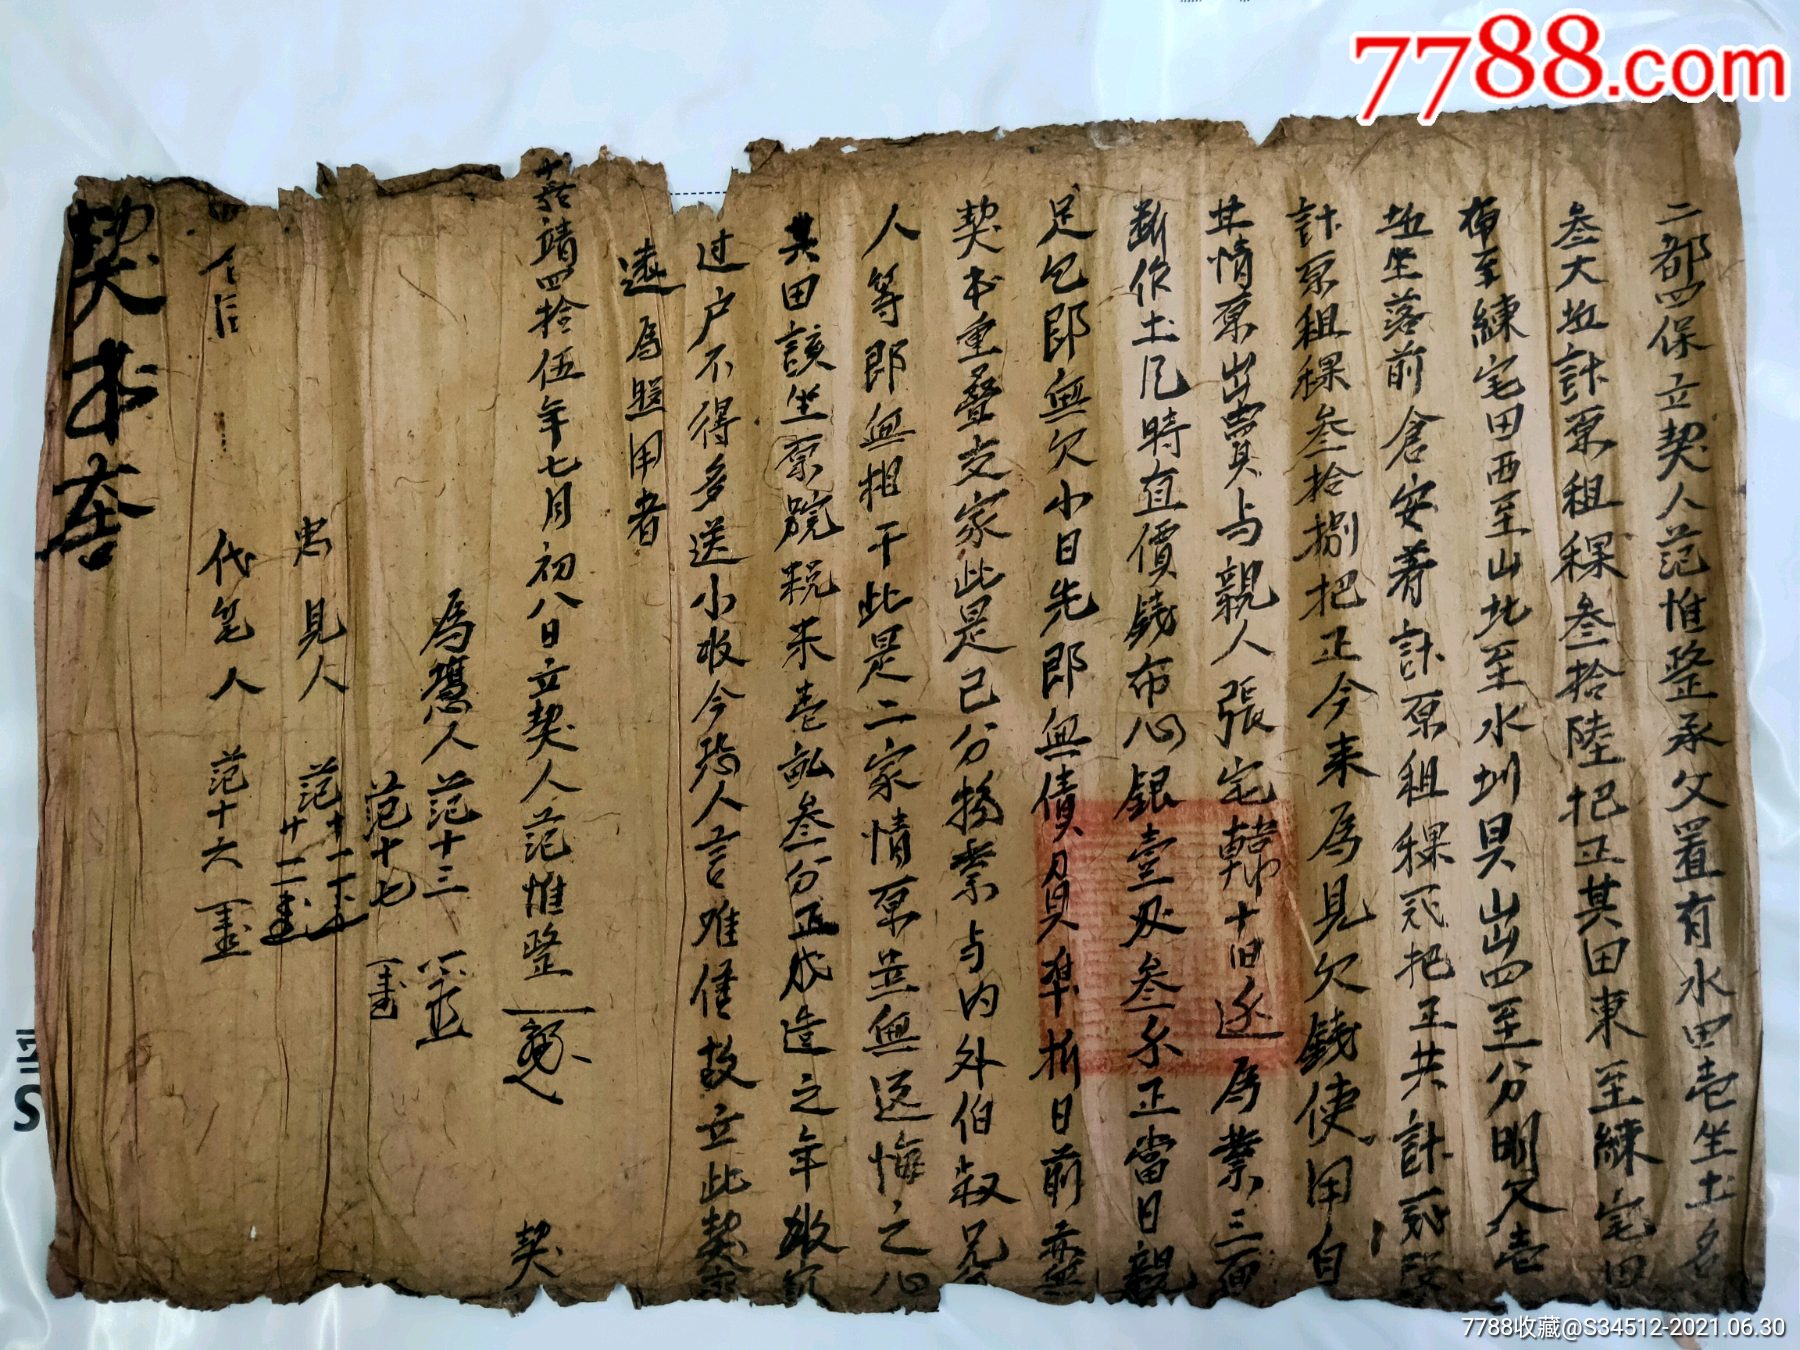 7788.com
二都四保立契人范惟整承父置有水田壱坐土名
叁大坵計原租稞叁拾陸把正其田東至練宅田
南至練宅田西至山北至水圳具出四至分明又壱
坵坐落前倉安着計原租稞弍把正共計弍段
計原租稞叁拾捌把正今来為見欠錢使用自
情原出賣与親人張宅韓十逐為業三面
断作土凡時直價錢布心銀壹叁正當日親
足乞郎無欠小日先郎無債貨準折日前
契書重叠交家此是己分物業与内外伯叔兄
人等郎無相干此是二家情原並無返悔之心
其田該坐原税米壱畝叁分正成造之年
过户不得多送小收今恐人言难信故立此契
遠為照用者
嘉靖四拾伍年七月初八日立契人范惟整
契
為憑人范十三
范十七
見人 范十一
十二
代笔人 范十六
契書
7788收藏@S34512-2021.06.30